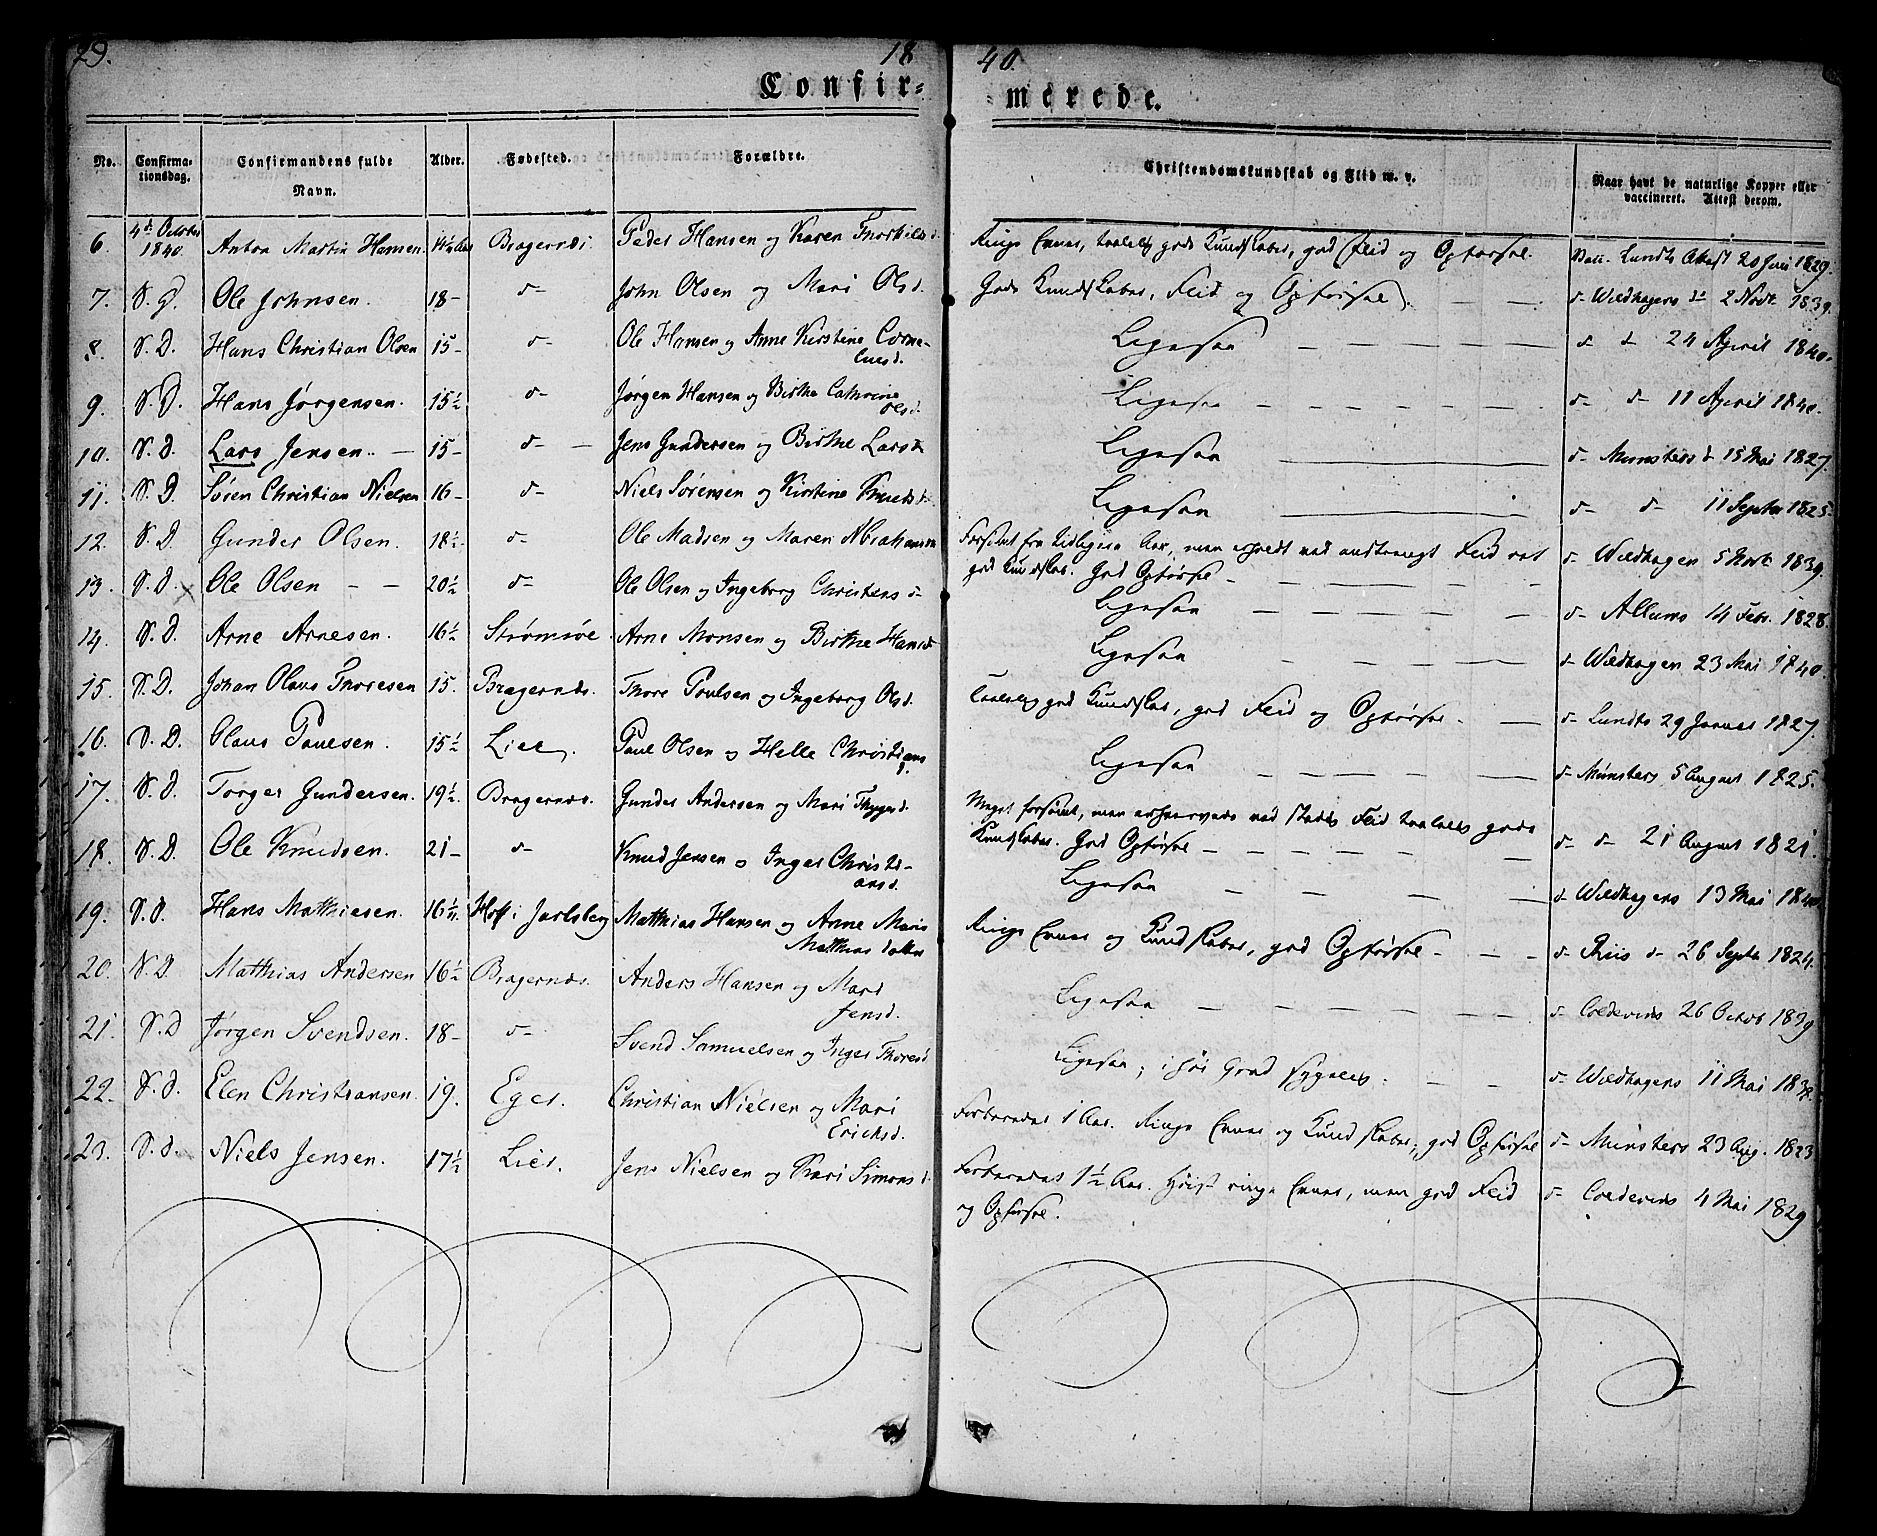 29. 18 40.
Confir= merede.
No. Confirma- tionsdag. Confirmandens fulde Navn. Alder. Fødested. Forældre. Christendomskundskab og Flid m. v. Naar havt de naturlige Kopper eller vaccineret. Attest derom.
6. 4d. October 1840. Anton Martin Hansen. Bragernæs. Peder Hansen og Karen Thorkilsd. Ringe Evner, taalelig gode Kundskaber, god Flid og Opførsel. Lundts Attest 20 Juni 1829.
7. S. D. Ole Johnsen. 18 – d– John Olsen og Mari Olsd. Gode Kundskaber, Flid og Opførsel. – – d– Wildhagens d– 2 Novb. 1839.
8. S. D. Hans Christian Olsen 15 – d– Ole Hansen og Anne Kirstine Corne-
liusd. Ligesaa – – – – – d– d– 24 April 1840.
9. S. D. Hans Jørgensen. 15½ d– Jørgen Hansen og Birthe Cathrine
Olsd. Ligesaa – – – – – – d– d– 11 April 1840.
10. S. D. Lars Jensen. – 15 – d– – Jens Gundersen og Birthe Larsd. Ligesaa d– Münsters d– 15 Mai 1827.
11. S. D. Søren Christian Nielsen 16 – d– Niels Sørensen og Kirstine Knudsd. Ligesaa d– d– 11 Septbr 1825.
12. S. D. Gunder Olsen. 18½ d– Ole Madsen og Maren Abrahamsd. Forsømt fra tidligere Aar, men erhvervet ved anstrengt Flid ret
god Kundskab. God Opførsel – d– Wildhagen 5 1839.
13. S. D. Ole Olsen – – 20½ d– Ole Olsen og Ingeborg Christens d– Ligesaa – – – – – d– Allums 14 Febr. 1828.
14. S. D. Arne Arnesen. 16½ Strømsøe. Arne Monsen og Birthe Hansd. Ligesaa – – – – – d– Wildhagen 23 Mai 1840.
15. S. D. Johan Olaus Thoresen 15. Bragernæs. Thore Poulsen og Ingeborg Olsd. Taalelig god Kundskab, god Flid og Opførsel. – d– Lundts 29 Januar 1827.
16. S. D. Olaus Paulsen. 15½ Lier. Paul Olsen og Helle Christians
d. Ligesaa – – – – – d– Münsters 5 August 1825.
17. S. D. Torger Gundersen. 19½. Bragernæs. Gunder Andersen og Mari Thygesd. Meget forsømt, men erhvervede ved stadig Flid taalelig gode
Kundskaber. God Opførsel – – – – – d– d– 21 August 1821.
18. S. D. Ole Knudsen. 21 – d– Knud Jensen og Inger Christi-
ansd. Ligesaa – – – – d– Wildhagens 13 Mai 1840.
19. S. D. Hans Matthiesen. Hoff i Jarlsberg Matthias Hansen og Anne Maria
Matthiasdatter Ringe Evner og Kundskaber, god Opførsel – – – d– Riis d– 26 Septbr 1824.
20. S. D. Matthias Andersen 16½ Bragernæs. Anders Hansen og Mari
Jensd. Ligesaa – – – – – d– Coldevins 26 Octob 1839.
21. S. D Jørgen Svendsen. 18 – d– Svend Samuelsen og Inger Thoresd. Ligesaa; i høi Grad sygelig. – – d– Wildhagens 11 Mai
22. S. D. Elen Christiansen. 19. Eger. Christian Nielsen og Mari
Ericksd. Forberedes 1 Aar. Ringe Evner og Kundskaber, god Opførsel d– Münsters 23 Aug. 1823
23. S. D. Niels Jensen. 17½ Lier. Jens Nielsen og Kari Simonsd. Forberedes 1½ Aar. Høist ringe Evner, men god Flid
og Opførsel. d– Coldevins 4 Mai 1829